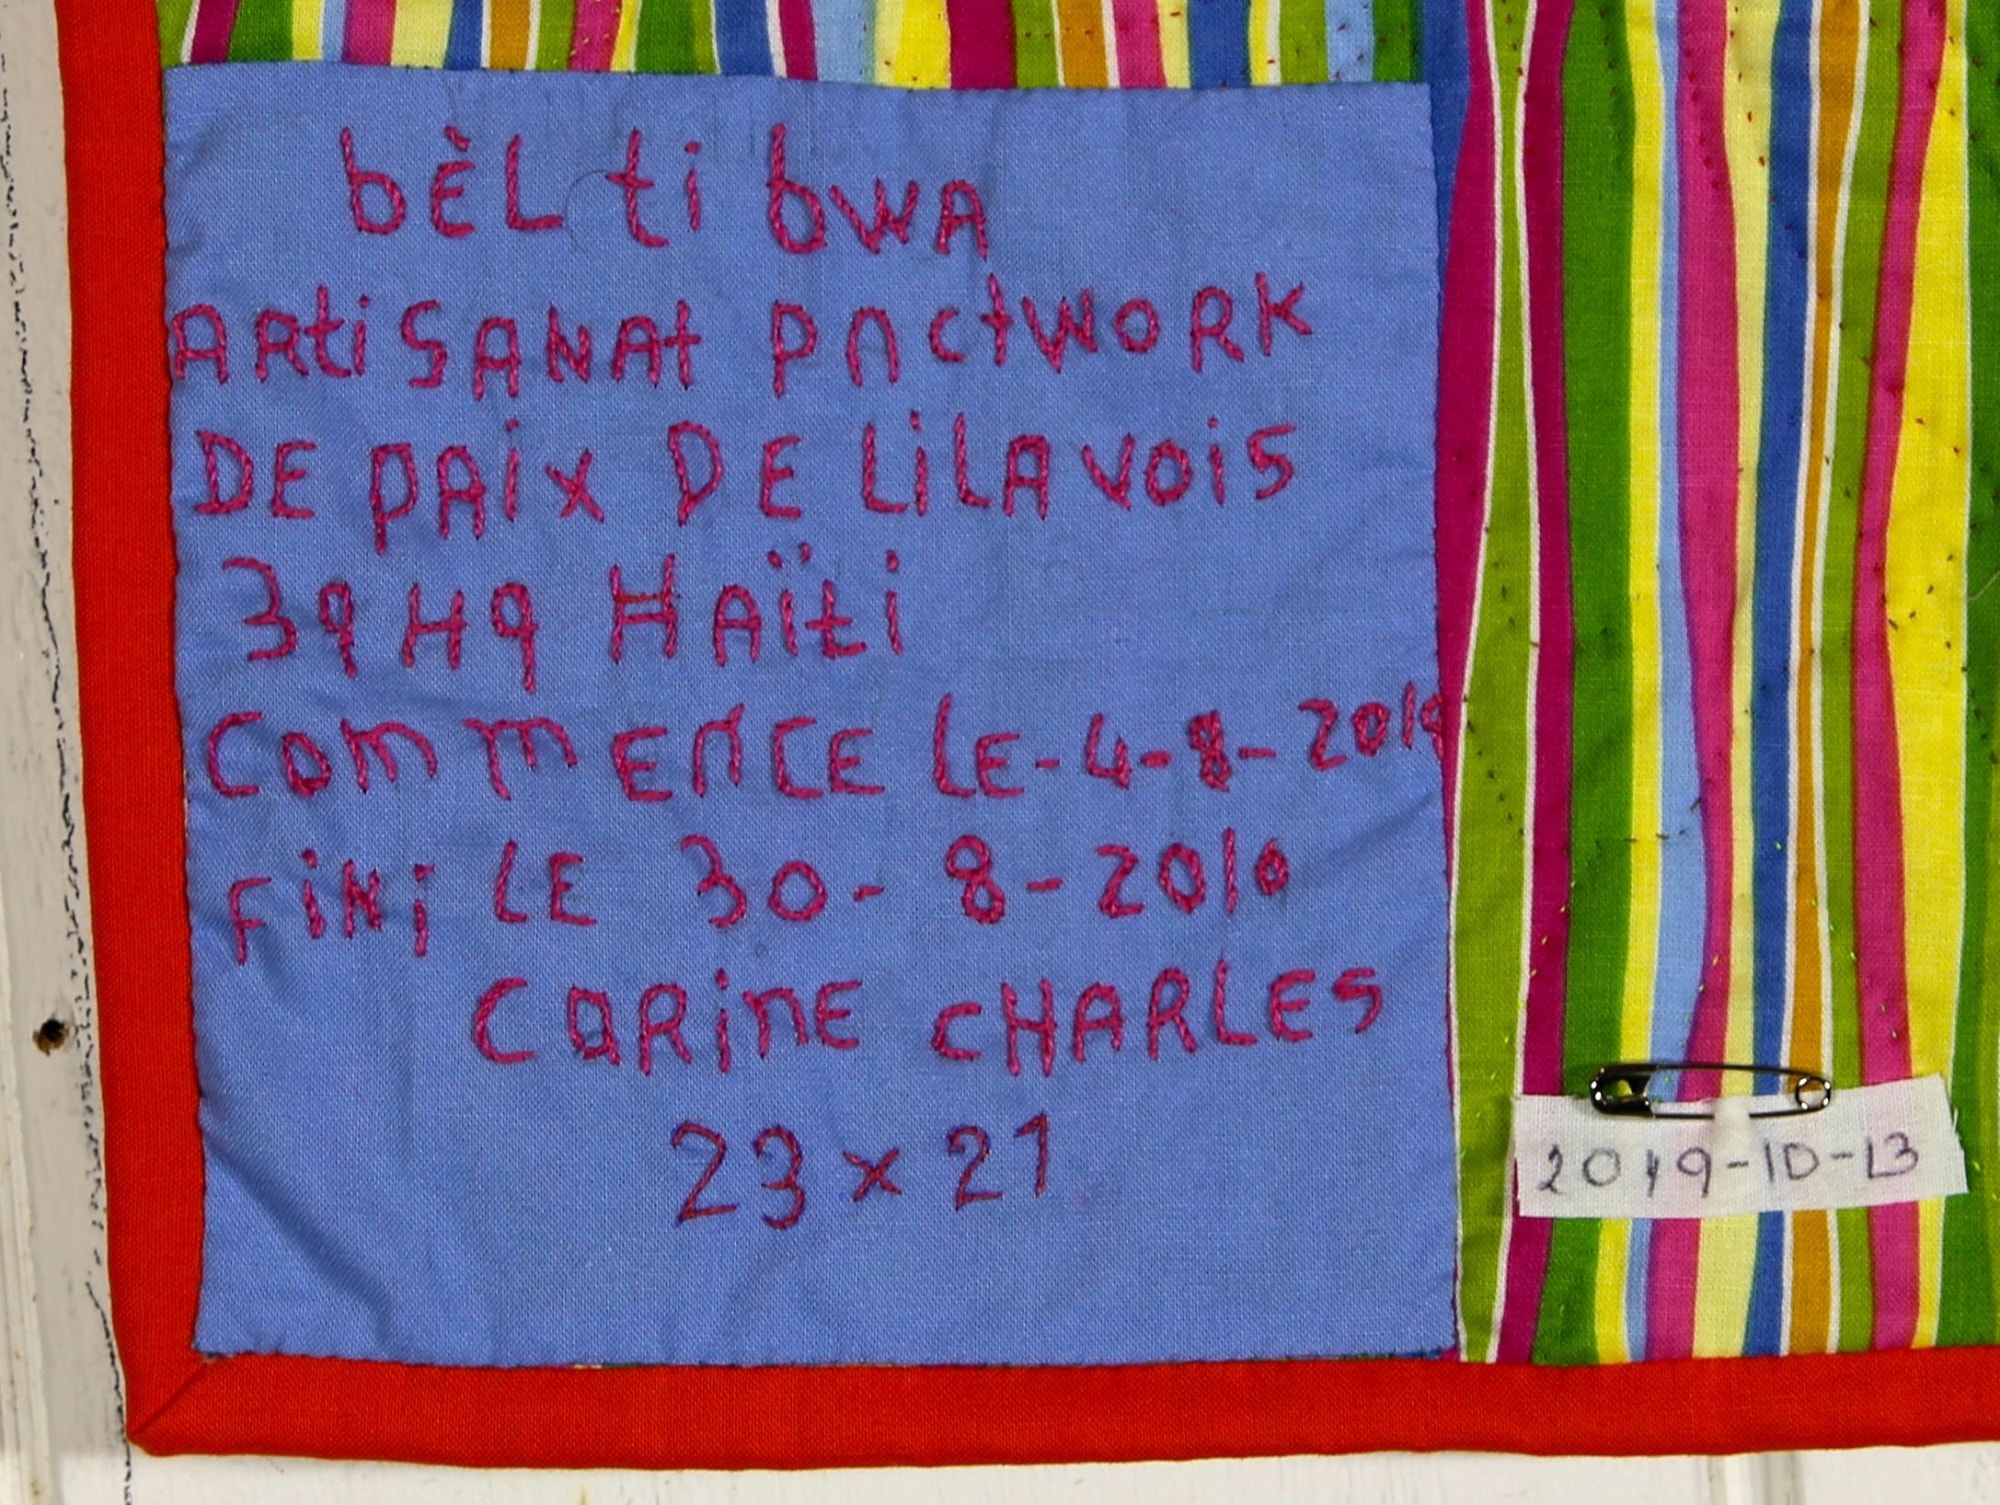 bÈL ti bwA
ARtiSANAt PACtWORK
DE PAix DE LiLAVOiS
39H9 HAÏti
COmmEnCE LE-4-8-2019
FiNi LE 30-8-2010
CARinE CHARLES
23x21
2019-10-13